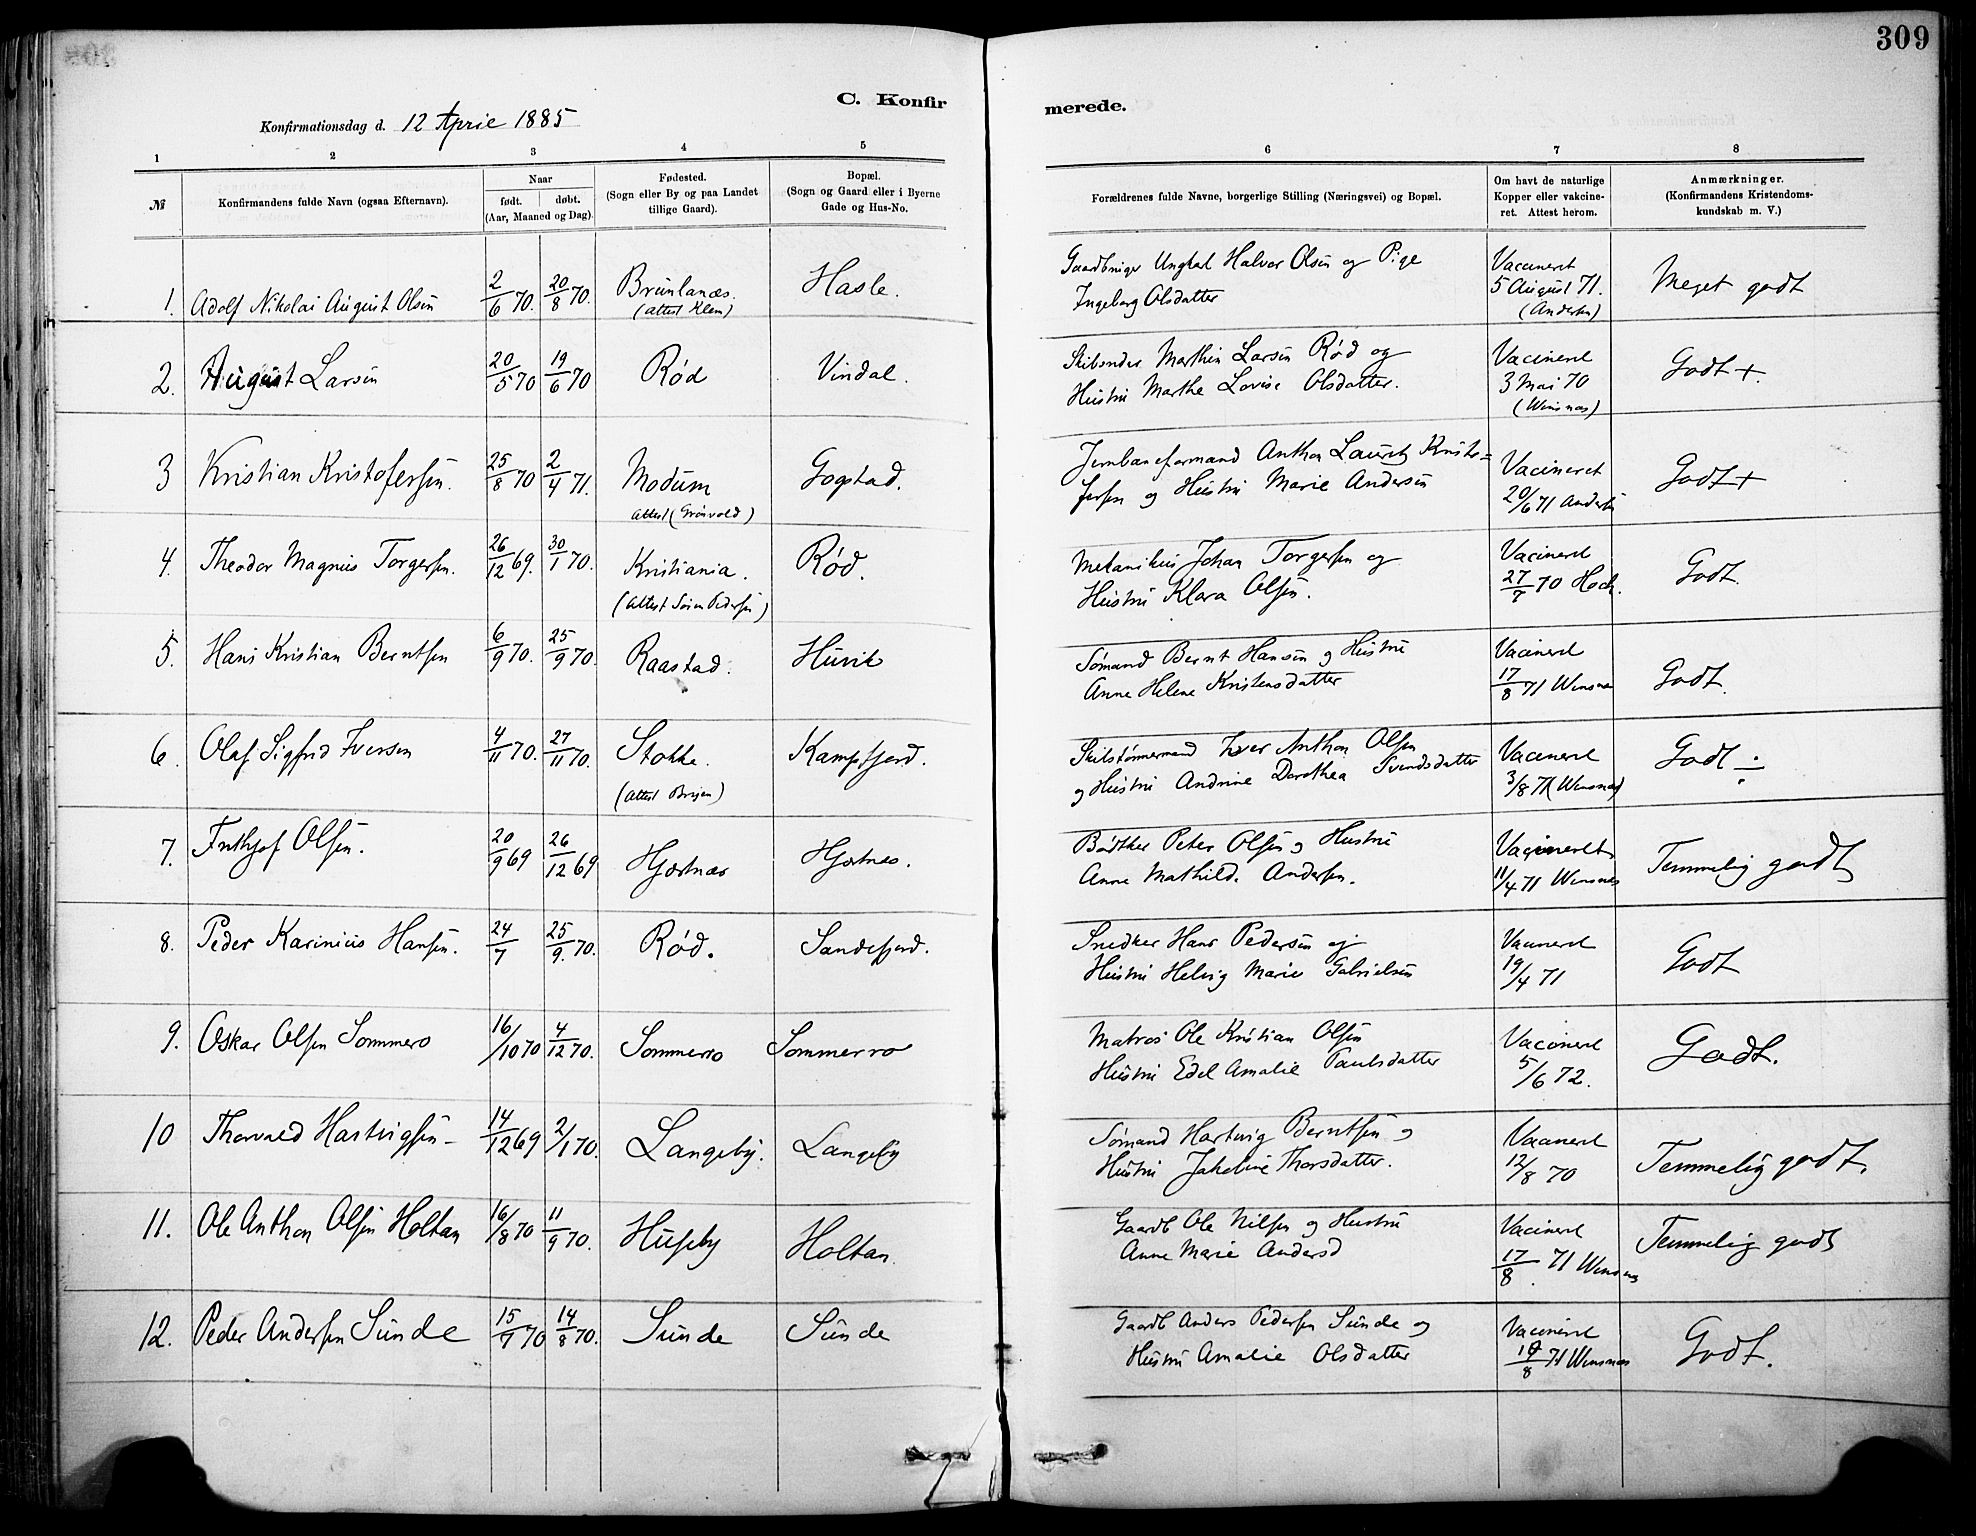 309
C. Konfir
merede.
Konfirmationsdag d. 12 April 1885
1 2 3 4 5 6 7 8
№
Konfirmandens fulde Navn (ogsaa Efternavn).
Naar
født. døbt.
(Aar, Maaned og Dag).
Fødested.
(Sogn eller By og paa Landet
tillige Gaard).
Bopæl.
(Sogn og Gaard eller i Byerne
Gade og Hus-No.
Forældrenes fulde Navne, borgerlige Stilling (Næringsvei) og Bopæl.
Om havt de naturlige
Kopper eller vakcine-
ret. Attest herom.
Anmærkninger.
(Konfirmandens Kristendoms-
kundskab m. V.)
1. Adolf Nikolai August Olsen 2/6 70. 20/8 70. Brunlanæs. Hasle.
(Attest Klem)
Gaardbruger Ungkarl Halvor Olsen og Pige
Ingeborg Olsdatter
Vacineret
5 August 71.
(Andersen)
Meget godt
2. August Larsen 20/5 70 19/6 70 Rød Vindal.
Skibsnder Marthin Larsen Rød og
Hustru Marthe Lovise Olsdatter.
Vacineret
3 Mai 70
(Winsnæs)
Godt +.
3 Kristian Kristofersen. 25/8 70 2/4 71. Modum Gogstad.
Attest (Grönvold)
Jernbaneformand Anthon Lauritz Kristo=
fersen og Hustru Marie Andersen
Vacineret
20/6 71 Andersen
Godt +
4. Theodor Magnus Torgersen. 26/12 69. 30/1 70. Kristiania. Rød.
(Attest Sören Pedersen)
Mekanikus Johan Torgersen og
Hustru Klara Olsen.
Vacineret
27/7 70 Hoch.
Godt.
5. Hans Kristian Berntsen 6/9 70. 25/9 70. Raastad. Huvik
Sømand Bernt Hansen og Hustru
Anne Helene Kristensdatter
Vacineret
17/8 71 Winsnæs
Godt.
6. Olaf Sigfrid Iversen 4/11 70. 27/11 70. Stokke. Kampfjord.
(Attest Brujen)
Skibstømmermand Iver Anthon Olsen
og Hustru Andrine Dorothea Svendsdatter
Vacineret
3/8 71 (Winsnæs)
Godt ÷
7. Frithjof Olsen. 20/9 69 26/12 69 Hjertnæs Hjertnes.
Bødtker Peter Olsen og Hustru
Anne Mathilde Andersen.
Vacineret
11/4 71 Winsnæs
Temmelig godt
8. Peder Karinius Hansen. 24/7 25/9. 70. Rød. Sandefjord.
Snedker Hans Pedersen og
Hustru Helvig Marie Gabrielsen
Vacineret
19/4 71
Godt
9. Oskar Olsen Sommero 16/10 70 4/12 70. Sommerro Sommerro
Matros Ole Kristian Olsen
Hustru Edel Amalie Paulsdatter
Vacineret
5/6 72.
Godt.
10 Thorvald Hartvigsen 14/12 69 2/1 70. Langeby. Langeby
Sømand Hartvig Berntsen og
Hustru Jakobine Thorsdatter.
Vacineret
12/8 70
Temmelig godt.
11. Ole Anthon Olsen Holtan 16/8 70 11/9 70. Huseby Holtan.
Gaardb Ole Nilsen og Hustru
Anne Marie Andersd
Vacineret
17/8. 71 Winsnæs
Temmelig godt
12. Peder Andersen Sunde 15/7 70 14/8 70. Sunde Sunde
Gaardb Anders Pedersen Sunde og
Hustru Amalie Olsdatter
Vacineret
19/8 71 Winsnæs
Godt.